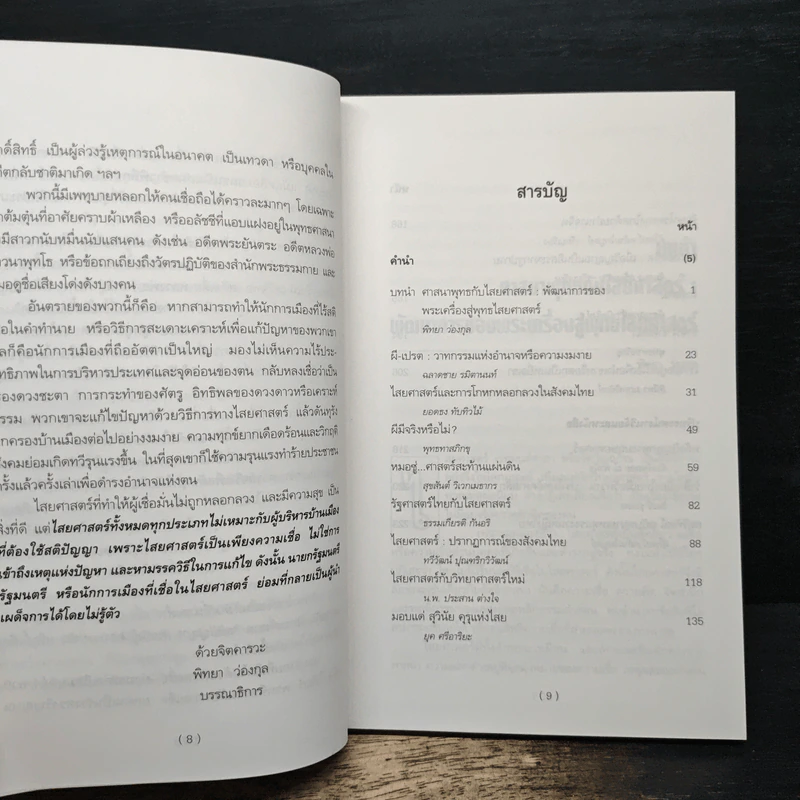 เป็นผู้ล่วงรู้เหตุการณ์ในอนาคต เป็นเทวดา หรือบุคคลใน
ตกลับชาติมาเกิด ฯลฯ
พวกนี้มีเพทุบายหลอกให้คนเชื่อถือได้คราวละมากๆ โดยเฉพาะ
ต้มตุ๋นที่อาศัยคราบผ้าเหลือง หรืออลัชชีที่แอบแฝงอยู่ในพุทธศาสนา
มีสาวกนับหมื่นนับแสนคน ดังเช่น อดีตพระยันตระ อดีตหลวงพ่อ
วนาพุทโธ หรือข้อถกเถียงถึงวัตรปฏิบัติของสำนักพระธรรมกาย และ
มอดูชื่อเสียงโด่งดังบางคน
อันตรายของพวกนี้ก็คือ หากสามารถทำให้นักการเมืองที่ไร้สติ
อในคำทำนาย หรือวิธีการสะเดาะเคราะห์เพื่อแก้ปัญหาของพวกเขา
ลก็คือนักการเมืองที่ถืออัตตาเป็นใหญ่ มองไม่เห็นความไร้ประ-
ทธิภาพในการบริหารประเทศและจุดอ่อนของตน กลับหลงเชื่อว่าเป็น
องดวงชะตา การกระทำของศัตรู อิทธิพลของดวงดาวหรือเคราะห์
รรม พวกเขาจะแก้ไขปัญหาด้วยวิธีการทางไสยศาสตร์ แล้วดันทุรัง
กครองบ้านเมืองต่อไปอย่างงมงาย ความทุกข์ยากเดือดร้อนและวิกฤติ
งคมย่อมเกิดทวีรุนแรงขึ้น ในที่สุดเขาก็ใช้ความรุนแรงทำร้ายประชาชน
รั้งแล้วครั้งเล่าเพื่อดำรงอำนาจแห่งตน
ไสยศาสตร์ที่ทำให้ผู้เชื่อมั่นไม่ถูกหลอกลวง และมีความสุข เป็น
สิ่งที่ดี แต่ไสยศาสตร์ทั้งหมดทุกประเภทไม่เหมาะกับผู้บริหารบ้านเมือง
ที่ต้องใช้สติปัญญา เพราะไสยศาสตร์เป็นเพียงความเชื่อ ไม่ใช่การ
เข้าถึงเหตุแห่งปัญหา และหามรรควิธีในการแก้ไข ดังนั้น นายกรัฐมนตรี
รัฐมนตรี หรือนักการเมืองที่เชื่อในไสยศาสตร์ ย่อมที่กลายเป็นผู้นำ
เผด็จการได้โดยไม่รู้ตัว
ด้วยจิตคารวะ
พิทยา ว่องกุล
บรรณาธิการ
(8)
สารบัญ
หน้า
คำนำ (5)
บทนำ ศาสนาพุทธกับไสยศาสตร์ : พัฒนาการของ 1
พระเครื่องสู่พุทธไสยศาสตร์
พิทยา ว่องกุล
ผี-เปรต : วาทกรรมแห่งอำนาจหรือความงมงาย 23
ฉลาดชาย รมิตานนท์
ไสยศาสตร์และการโกหกหลอกลวงในสังคมไทย 31
ยอดธง ทับทิวไม้
ผีมีจริงหรือไม่? 49
พุทธทาสภิกขุ
หมอซู่...ศาสตร์สะท้านแผ่นดิน 59
สุขสันต์ วิเวกเมธากร
รัฐศาสตร์ไทยกับไสยศาสตร์ 82
ธรรมเกียรติ กันอริ
ไสยศาสตร์ : ปรากฏการณ์ของสังคมไทย 88
ทวีวัฒน์ ปุณฑริกวิวัฒน์
ไสยศาสตร์กับวิทยาศาสตร์ใหม่ 118
น.พ. ประสาน ต่างใจ
มอบแด่ สุวินัย คุรุแห่งไสย 135
ยุค ศรีอาริยะ
(9)